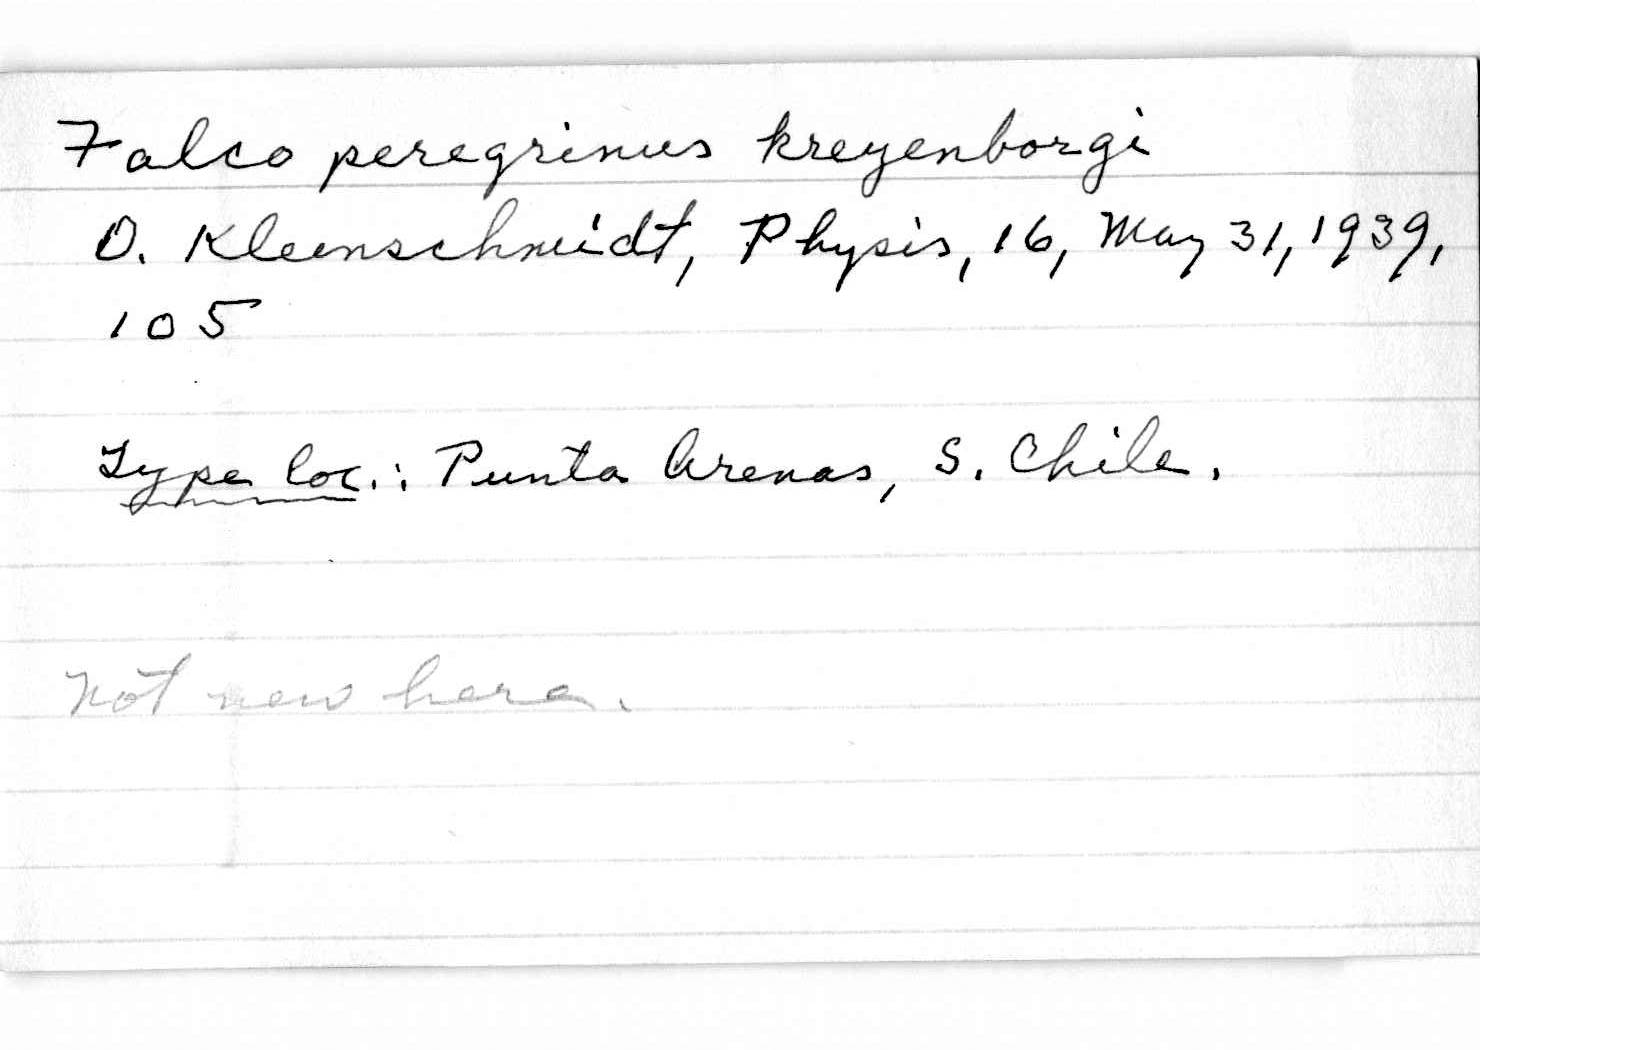 Falco peregrinus kreyenborgi
O. Kleinschmidt, Physis, 16, May 31, 1939,
105
Type loc.: Punta Arenas, S. Chile.
Not new here.